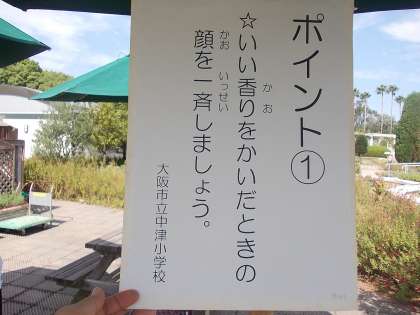 ポイント①
☆いい香りをかいだときの
かお
顔を一斉しましょう。
かお いっせい
大阪市立中津小学校